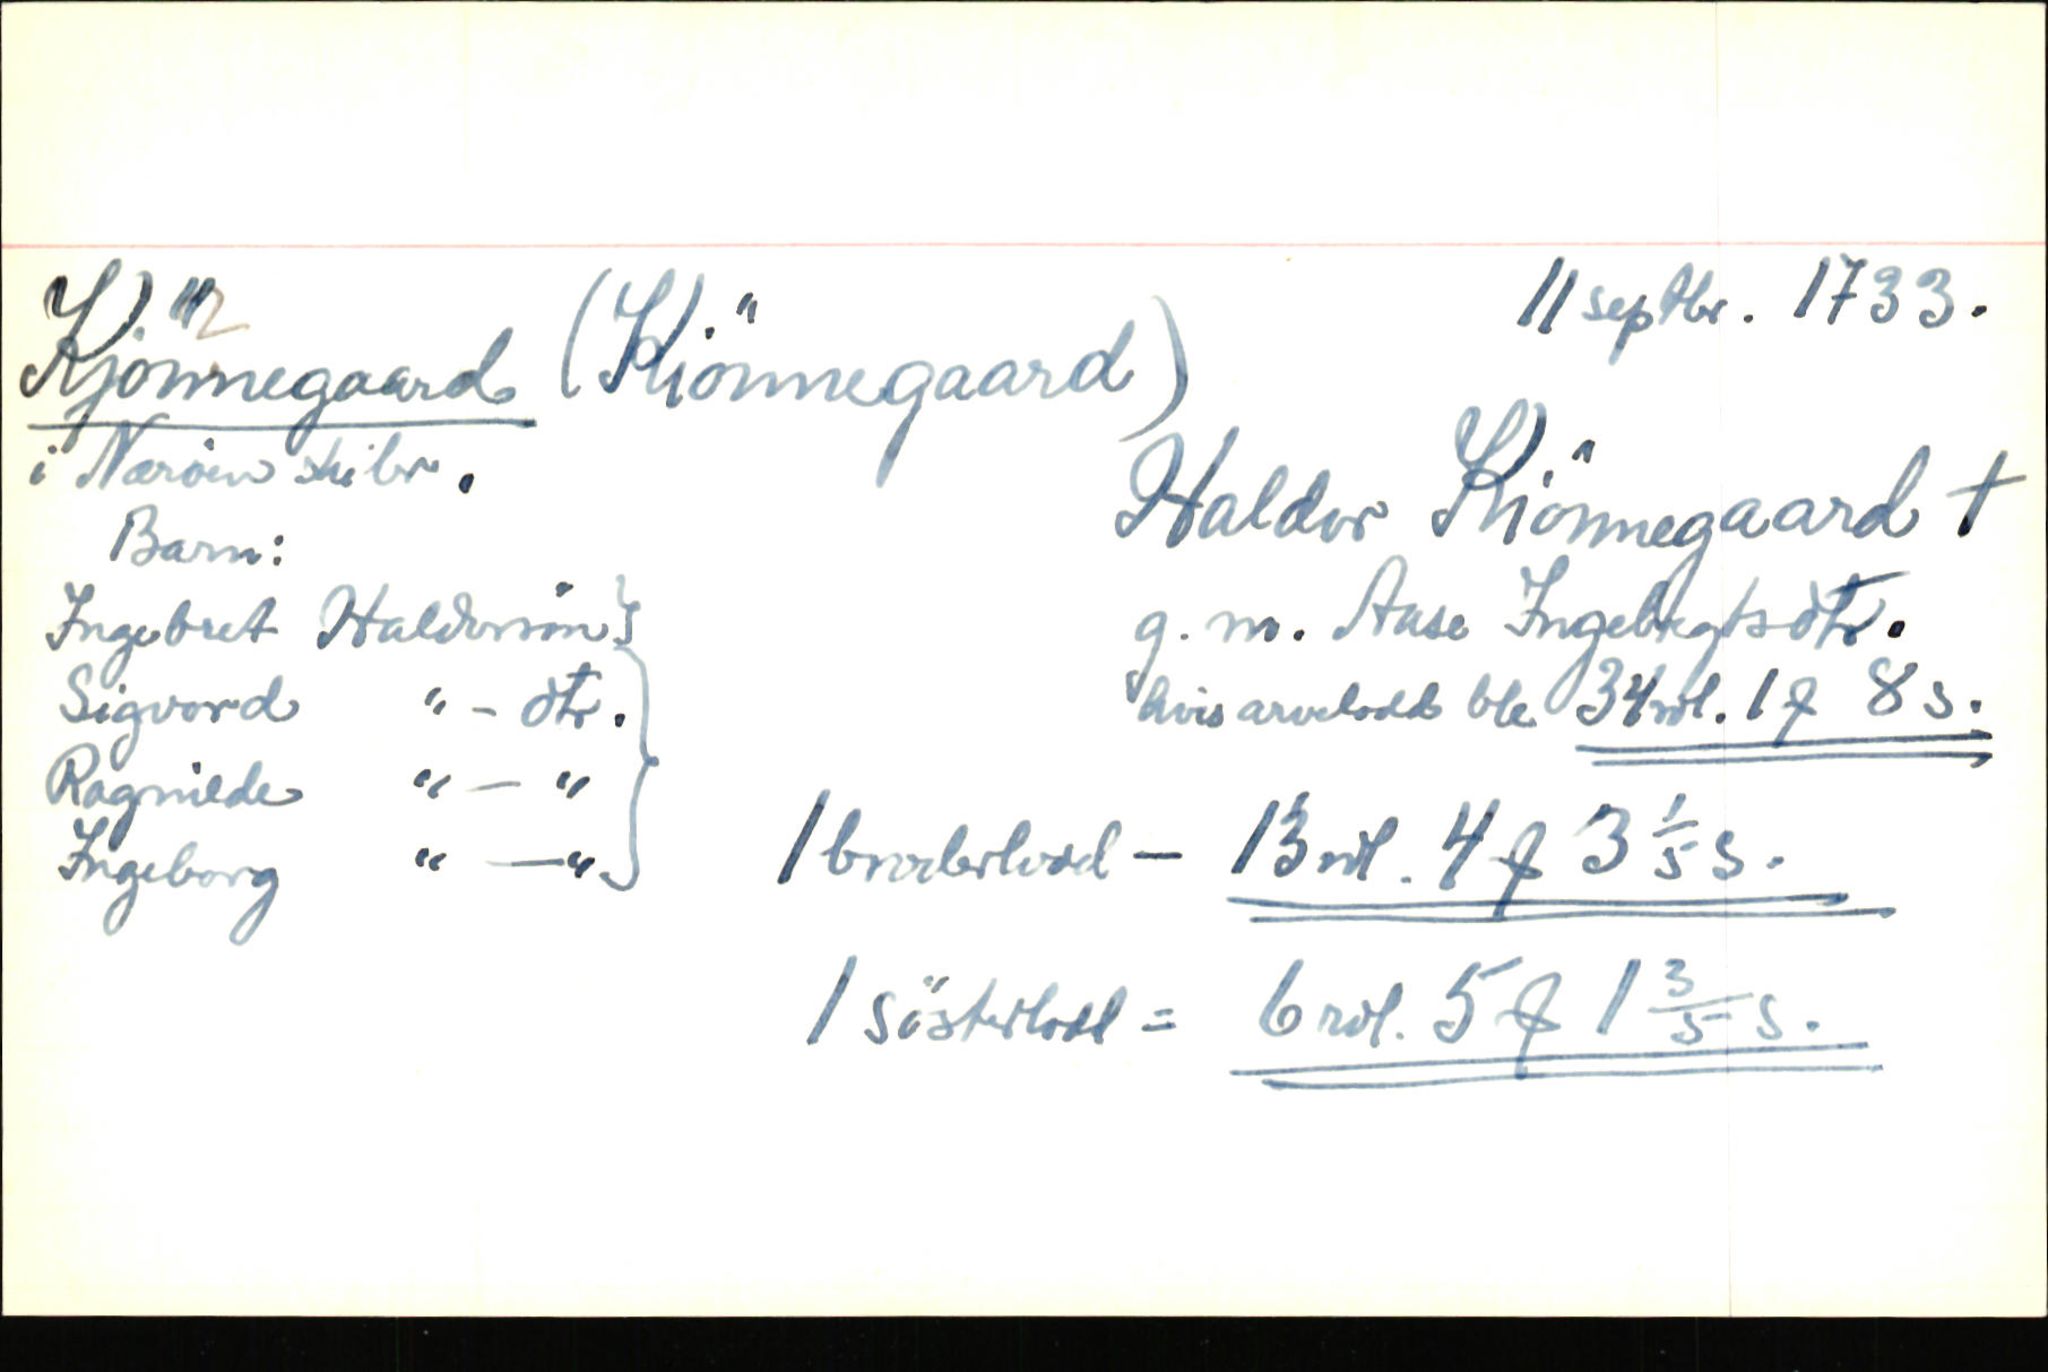 Kjönnegaard (Kiönnegaard)
11 septbr. 1733.
i Næröen skibr.
Haldor Kiönnegaard †
g. m. Aase Ingebregtsdtr.
hvis arvelodd ble 34 rdl. 1 f 8 s.
Barn:
Ingebret Haldorsön
Sigvord " - dtr.
Ragnilde " — "
Ingeborg " — "
1 broderlodd — 13 rdl. 4 f 3 1/5 s.
1 søsterlodd = 6 rdl. 5 f 1 3/5 s.